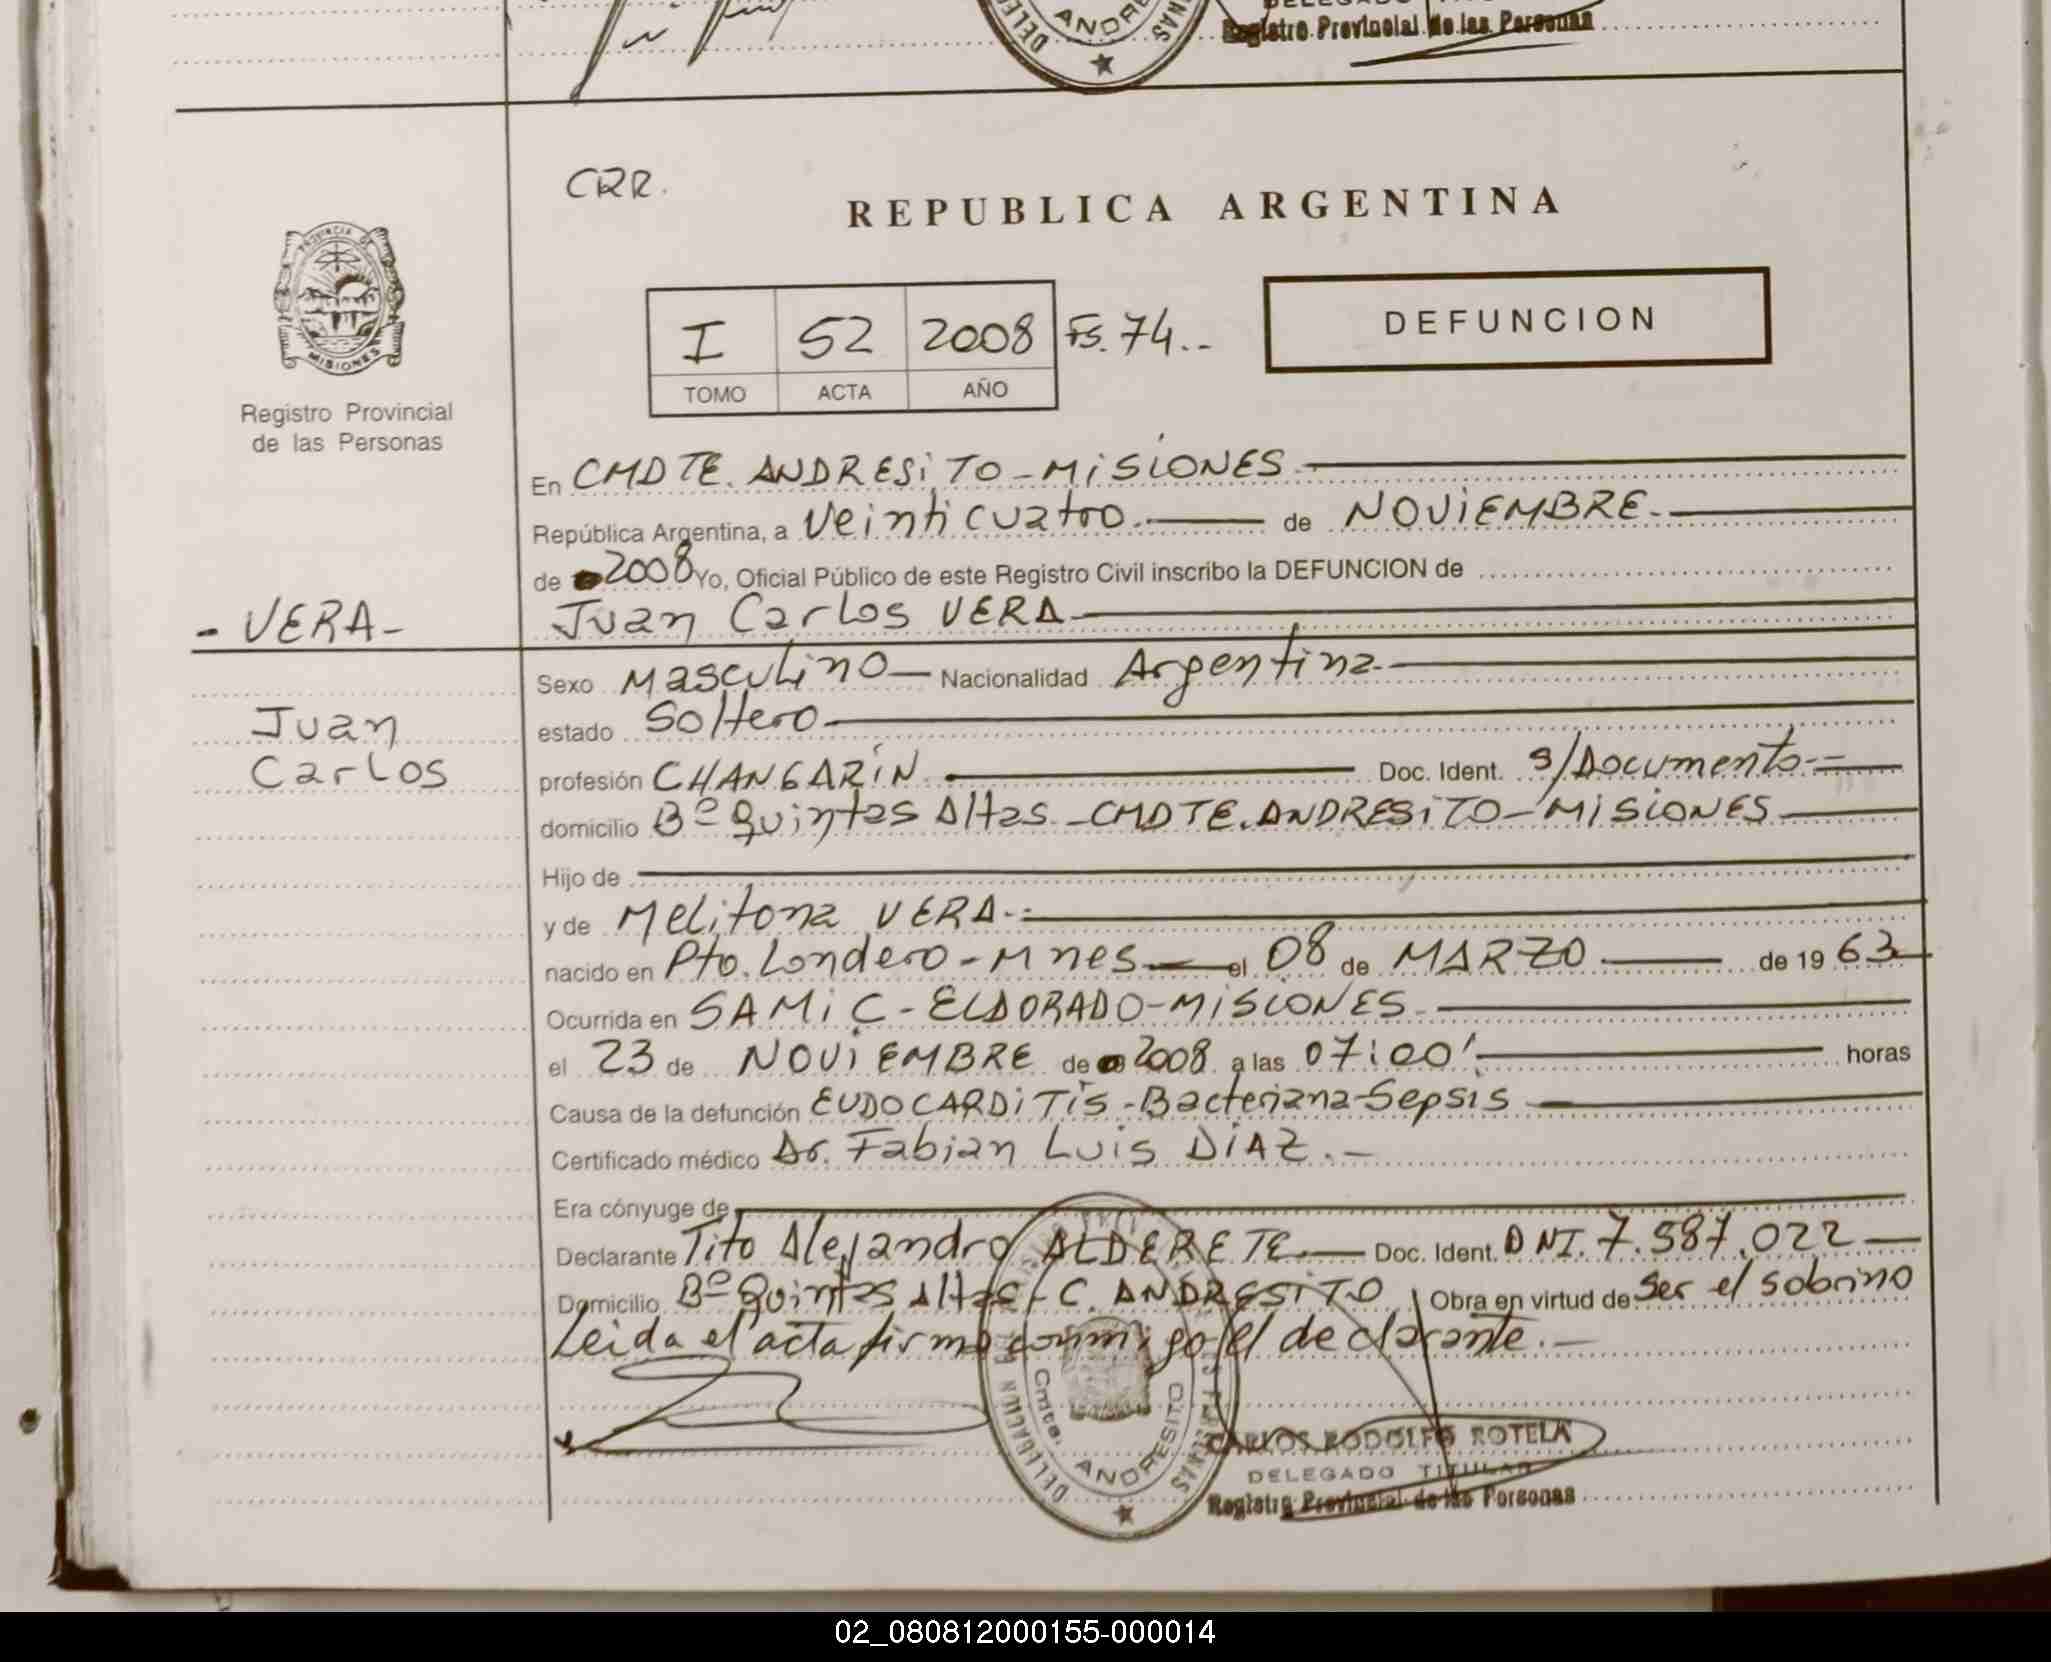 ANDRE
DELE
NAS
DELEGADO
Registro Provincial de las Personas
CRR.
REPUBLICA ARGENTINA
PROVINCIA DE
MISIONES
Registro Provincial
de las Personas
I 52 2008 Fs. 74.-
TOMO ACTA AÑO
DEFUNCION
En CMDTE. ANDRESiTO - MiSiONES
República Argentina, a Veinticuatro. de NOViEMBRE.
de 2008 Yo, Oficial Público de este Registro Civil inscribo la DEFUNCION de
- VERA -
Juan Carlos VERA
Sexo Masculino Nacionalidad Argentina.
estado Soltero
Juan
Carlos
profesión CHANGARÍN Doc. Ident. s/Documento.-
domicilio Bº Quintas Altas - CMDTE. ANDRESiTO - MiSiONES
Hijo de
y de Melitona VERA.-
nacido en Pto. Londero - Mnes el 08 de MARZO de 19 63
Ocurrida en SAMiC - ELDORADO - MiSiONES
el 23 de NOViEMBRE de 2008 a las 07:00' horas
Causa de la defunción EUDOCARDiTis - Bacteriana - Sepsis
Certificado médico Dr. Fabian Luis DiAZ.-
Era cónyuge de
Declarante Tito Alejandro ALDERETE. Doc. Ident. DNI. 7.587.022
Domicilio Bº Quintas Altas - C. ANDRESiTO Obra en virtud de Ser el sobrino
Leida el acta firma conmigo el declarante.-
Cmte. ANDRESITO
CARLOS RODOLFO ROTELA
DELEGADO TITULAR
Registro Provincial de las Personas
02_080812000155-000014